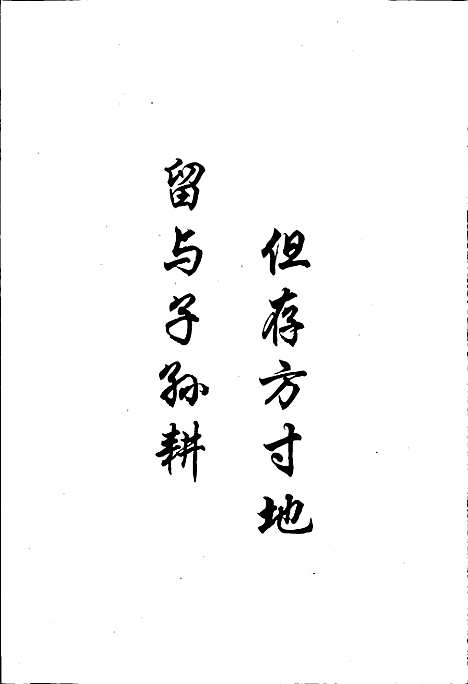 但存方寸地
留与子孙耕